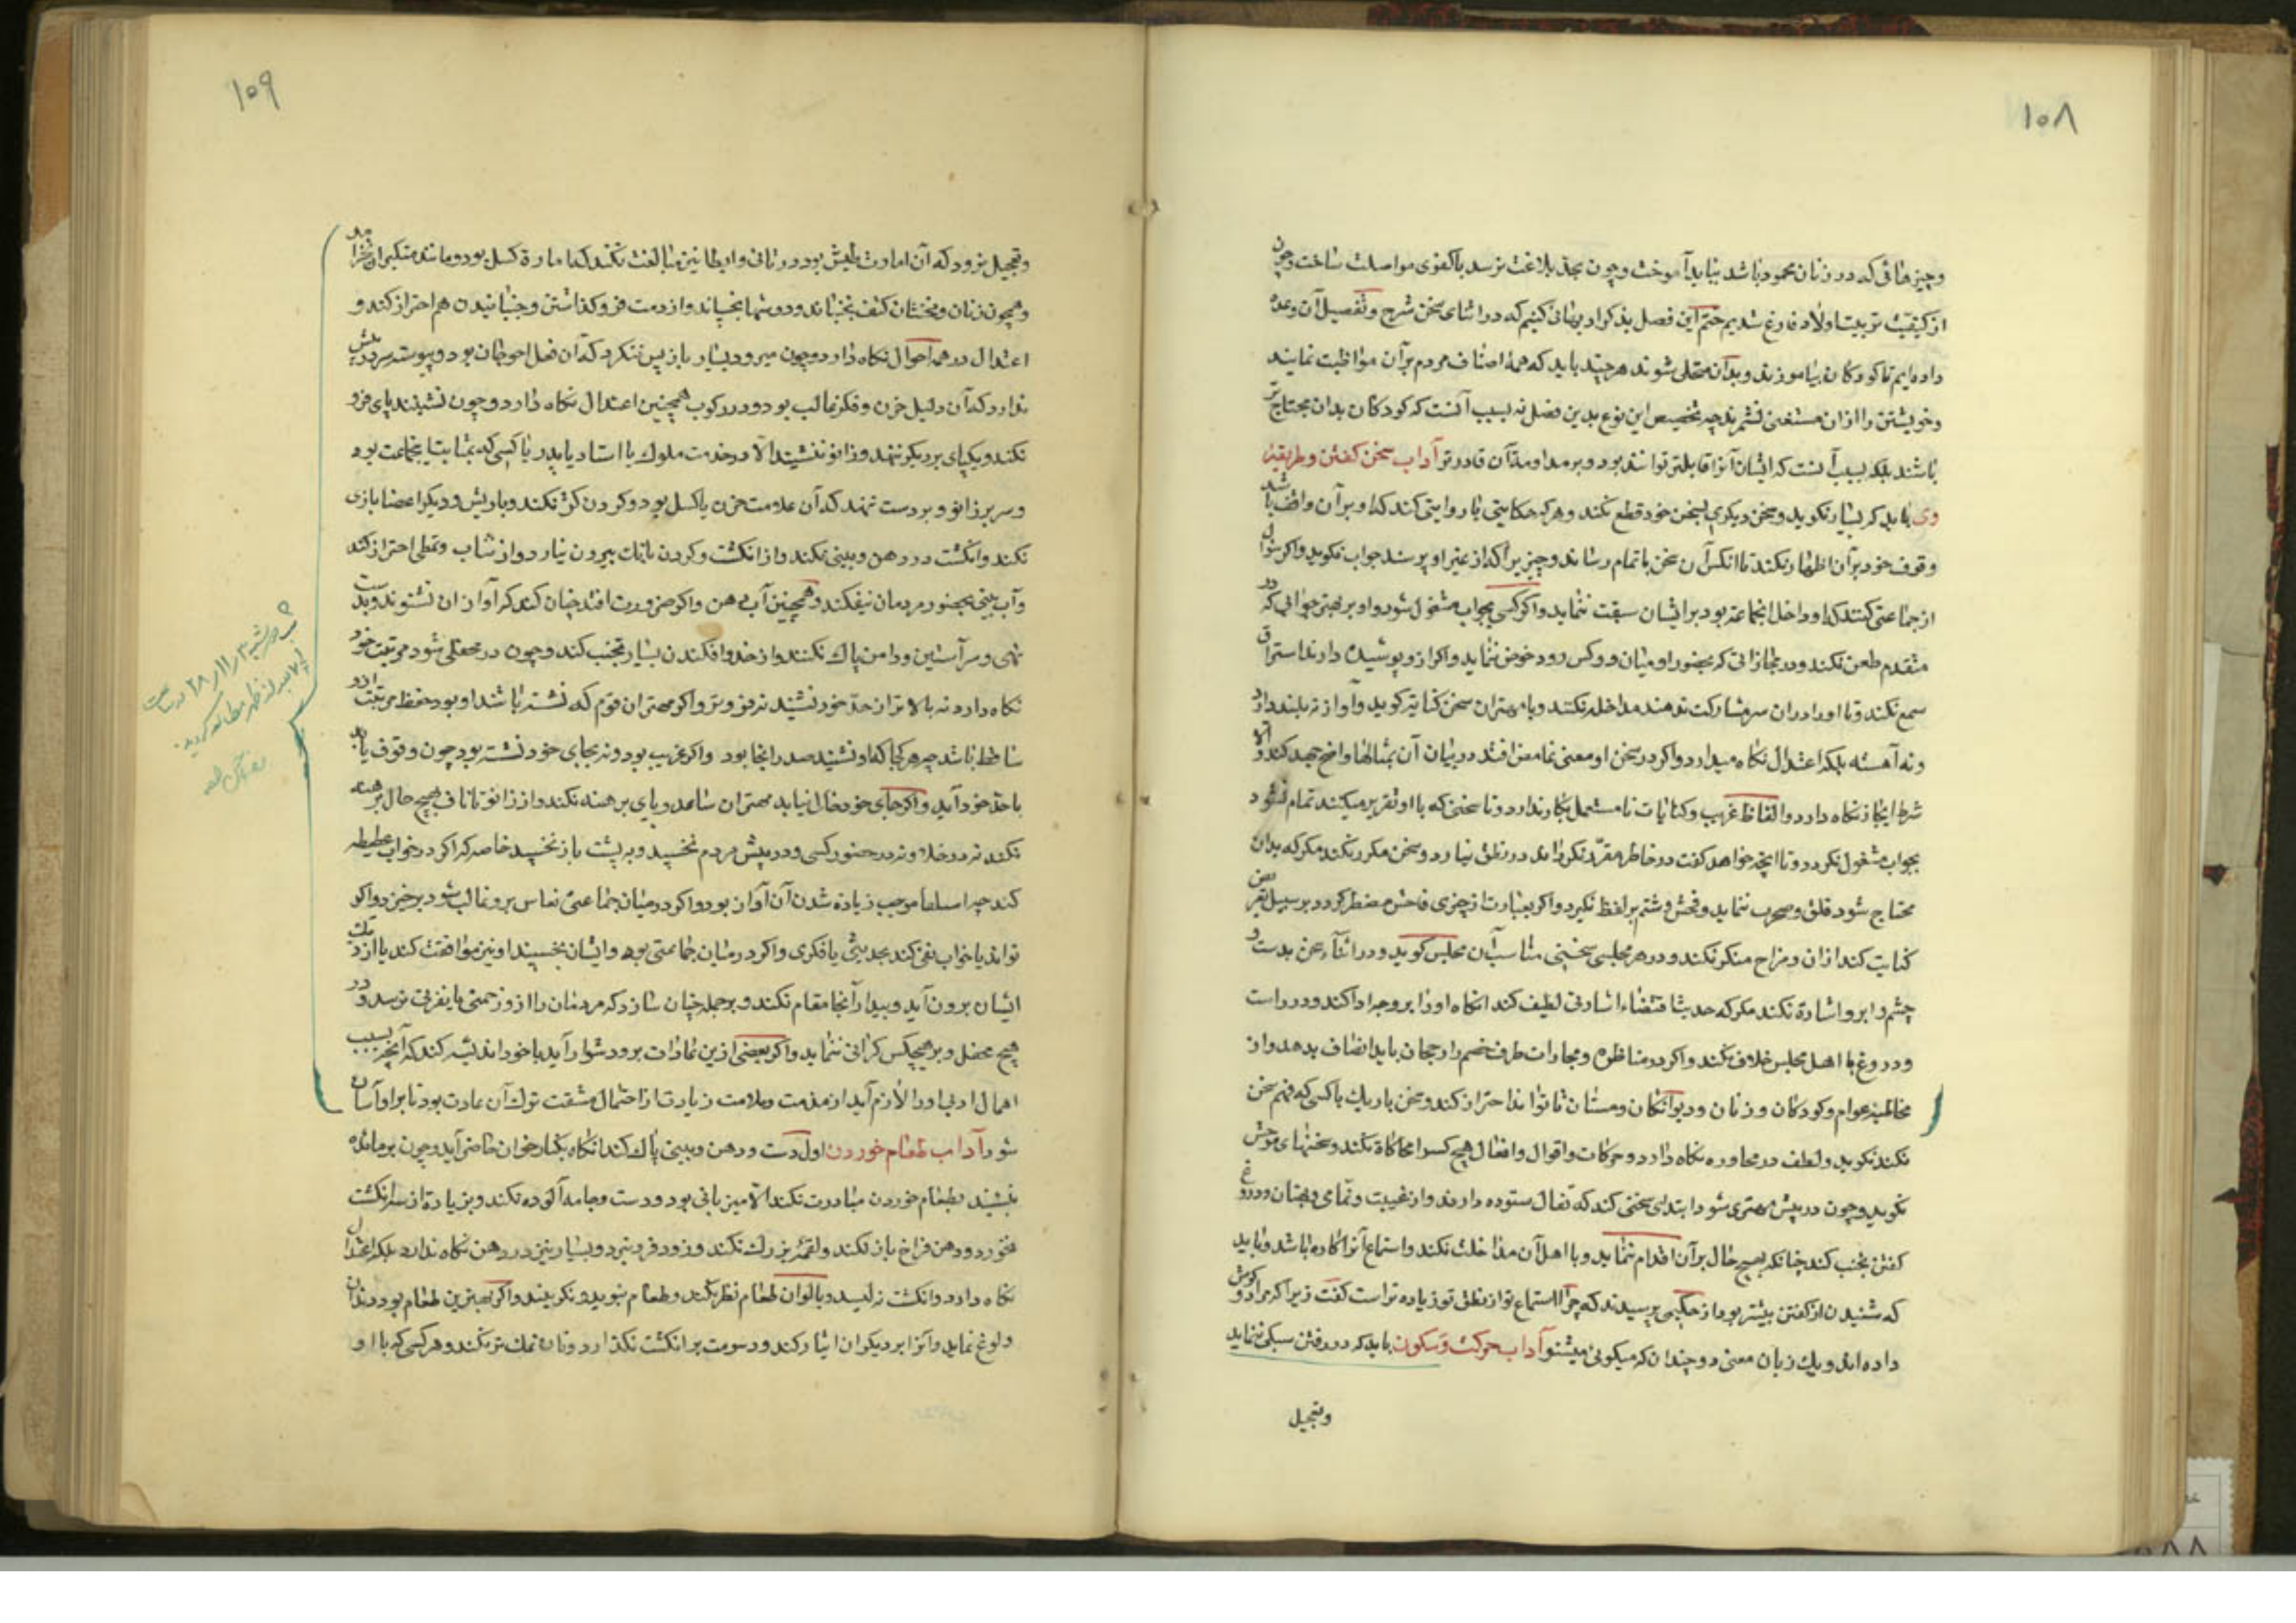 ۱۰۸
وچیزهائی که در زنان محمود باشد بباید آموخت وچون بحد بلاغت برسد با کفوی مواصلت ساخت وچون
از کیفیت تربیت اولاد فارغ شدیم ختم این فصل بذکر ادبهائی کنیم که در اثنای سخن شرح وتفصیل آن وعده
داده ایم تا کودکان بیاموزند وبدان متحلی شوند هر چند باید که همهٔ اصناف مردم برآن مواظبت نمایند
وخویشتن را ازان مستغنی نشمرند چه تخصیص این نوع بدین فصل نه بسبب آنست که کودکان بدان محتاج تر
باشند بلکه بسبب آنست که ایشان آنرا قابلتر توانند بود وبر مداومت آن قادر تر آداب سخن کفتن وطریقهٔ
وی باید که بسیار نکوید وسخن دیکری بسخن خود قطع نکند وهرکه حکایتی یا روایتی کند که او برآن واقف باشد
وقوف خود برآن اظهار نکند تا آنکس آن سخن باتمام رساند وچیزیرا که از غیر او پرسند جواب نکوید واکر سؤال
از جماعتی کنند که او داخل آنجماعة بود بر ایشان سبقت ننماید واکر کسی بجواب مشغول شود واو بر بهتر جوابی قادر
متقدم طعن نکند ودر مجاراتی که بحضور او میان دو کس رود خوض ننماید واکر ازو پوشیده دارند استراق
سمع نکند وتا او را دران سر مشارکت ندهند مداخله نکند وبا مهتران سخن کنایة کوید وآواز نه بلند دارد
ونه آهسته بلکه اعتدال نکاه میدارد واکر در سخن او معنی غامض افتد در بیان آن بمثالها واضح جهد کند والا
شرط ایجاز نکاه دارد والفاظ غریب وکنایات نامستعمل بکار ندارد وتا سخنی که با او تقریر میکنند تمام نشود
بجواب مشغول نکردد وتا آنچه خواهد کفت در خاطر مقرر نکرداند در نطق نیارد وسخن مکرر نکند مکر که بدان
محتاج شود قلق وضجرت ننماید وفحش وشتم بر لفظ نکیرد واکر بعبارت از چیزی فاحش مضطر کردد بر سبیل تعریض
کنایت کند ازان ومزاح منکر نکند ودر هر مجلسی سخنی مناسب آن مجلس کوید ودر اثناء سخن بدست و
چشم وابرو اشارة نکند مکر که حدیث اقتضاء اشارتی لطیف کند آنکاه او را بر وجه ادا کند ودر راست
ودروغ با اهل مجلس خلاف نکند واکر در مناظره ومجارات طرف خصم را رجحان یابد انصاف بدهد واز
مخاطبهٔ عوام وکودکان وزنان ودیوانکان ومستان تا تواند احتراز کند وسخن باریك با کسی که فهم سخن
نکند نکوید ولطف در محاوره نکاه دارد وحرکات واقوال وافعال هیچ کس را محاکاة نکند وسخنهای موحش
نکوید وچون در پیش مهتری شود ابتدا بسخنی کند که بفال ستوده دارند واز غیبت ونمامی وبهتان ودروغ
کفتن تجنب کند چنانکه بهیچ حال برآن اقدام ننماید وبا اهل آن مداخلت نکند واستماع آنرا کاره باشد وباید
که شنیدن از کفتن بیشتر بود از حکیمی پرسیدند که چرا استماع تو از نطق تو زیاده تر است کفت زیرا که مرا دو کوش
داده اند ویك زبان معنی دو چندان که میکوئی میشنو آداب حرکت وسکون باید که در رفتن سبکی ننماید
وتعجیل
۱۰۹
وتعجیل نرود که آن امارت طیش بود ودر تانی وابطا نیز مبالغت نکند که امارة کسل بود ومانند متکبران نخرامد
وهمچون زنان ومخنثان کتف نجنباند ودوشها نجنباند واز دست فرو کذاشتن وجنبانیدن هم احتراز کند و
اعتدال در همه احوال نکاه دارد وچون میرود بسیار باز پس ننکرد که آن فعل احمقان بود وپیوسته سر در پیش
ندارد که آن دلیل حزن وفکر غالب بود ودر رکوب همچنین اعتدال نکاه دارد وچون نشیند پای فرو
نکند ویکپای بر دیکر ننهد وزانو ننشیند الا در خدمت ملوك یا استاد یا پدر یا کسی که بمثابت اینجماعت بود
وسر بر زانو وبر دست ننهد که آن علامت حزن یا کسل بود وکردن کژ نکند وبا ریش ودیکر اعضا بازی
نکند وانکشت در دهن وبینی نکند واز انکشت وکردن بانك بیرون نیارد واز تثاوب وتمطی احتراز کند
وآب بینی بحضور مردمان نیفکند وهمچنین آب دهن واکر ضرورت افتد چنان کند که آواز آن نشنوند وبدست
تهی وسر آستین ودامن پاك نکند واز خدو افکندن بسیار تجنب کند وچون در محفلی شود مرتبت خود
نکاه دارد نه بالاتر از حد خود نشیند نه فروتر واکر مهتر آن قوم که نشسته باشند او بود حفظ مرتبت ازو
ساقط باشد چه هر کجا که او نشیند صدر آنجا بود واکر غریب بود ونه بجای خود نشسته بود چون وقوف یابد
با حد خود آید واکر جای خود خالی نیابد مهتران ساعد وپای برهنه نکند واز زانو تا ناف بهیچ حال برهنه
نکند نه در خلا ونه در حضور کسی ودر پیش مردم نخسپد وبه پشت باز نخسپد خاصه که اکر در خواب غطیطه
کند چه استلقا موجب زیاده شدن آن آواز بود واکر در میان جماعتی نعاس برو غالب شود برخیزد واکر
تواند یا خواب نفی کند بحدیثی یا فکری واکر در میان جماعتی بود وایشان بخسپند او نیز موافقت کند یا از نزدیك
ایشان برون آید وبیدار آنجا مقام نکند وبر جمله چنان سازد که مردمان را ازو زحمتی یا نفرتی نرسد ودر
هیچ محفل وبر هیچکس کرانی ننماید واکر بعضی ازین عادات برو دشوار آید با خود اندیشه کند که آنچه بسبب
اهمال ادبی او را لازم آید از مذمت وملامت زیادت از احتمال مشقت ترك آن عادت بود تا بر او آسان
شود آداب طعام خوردن اول دست ودهن وبینی پاك کند آنکاه بکنار خوان حاضر آید وچون بر مائده
بنشیند بطعام خوردن مبادرت نکند الا میزبانی بود ودست وجامه آلوده نکند وبزیادة از سه انکشت
نخورد ودهن فراخ باز نکند ولقمهٔ بزرك نکند وزود فرو نبرد وبسیار نیز در دهن نکاه ندارد بلکه اعتدال
نکاه دارد وانکشت نه لیسد وبالوان طعام نظر نکند وطعام نبوید ونکزیند واکر بهترین طعام بود دران
ولوغ ننماید وآنرا بر دیکران ایثار کند ودسومت بر انکشت نکذارد ونان نمك تر نکند وهر کسی که با او